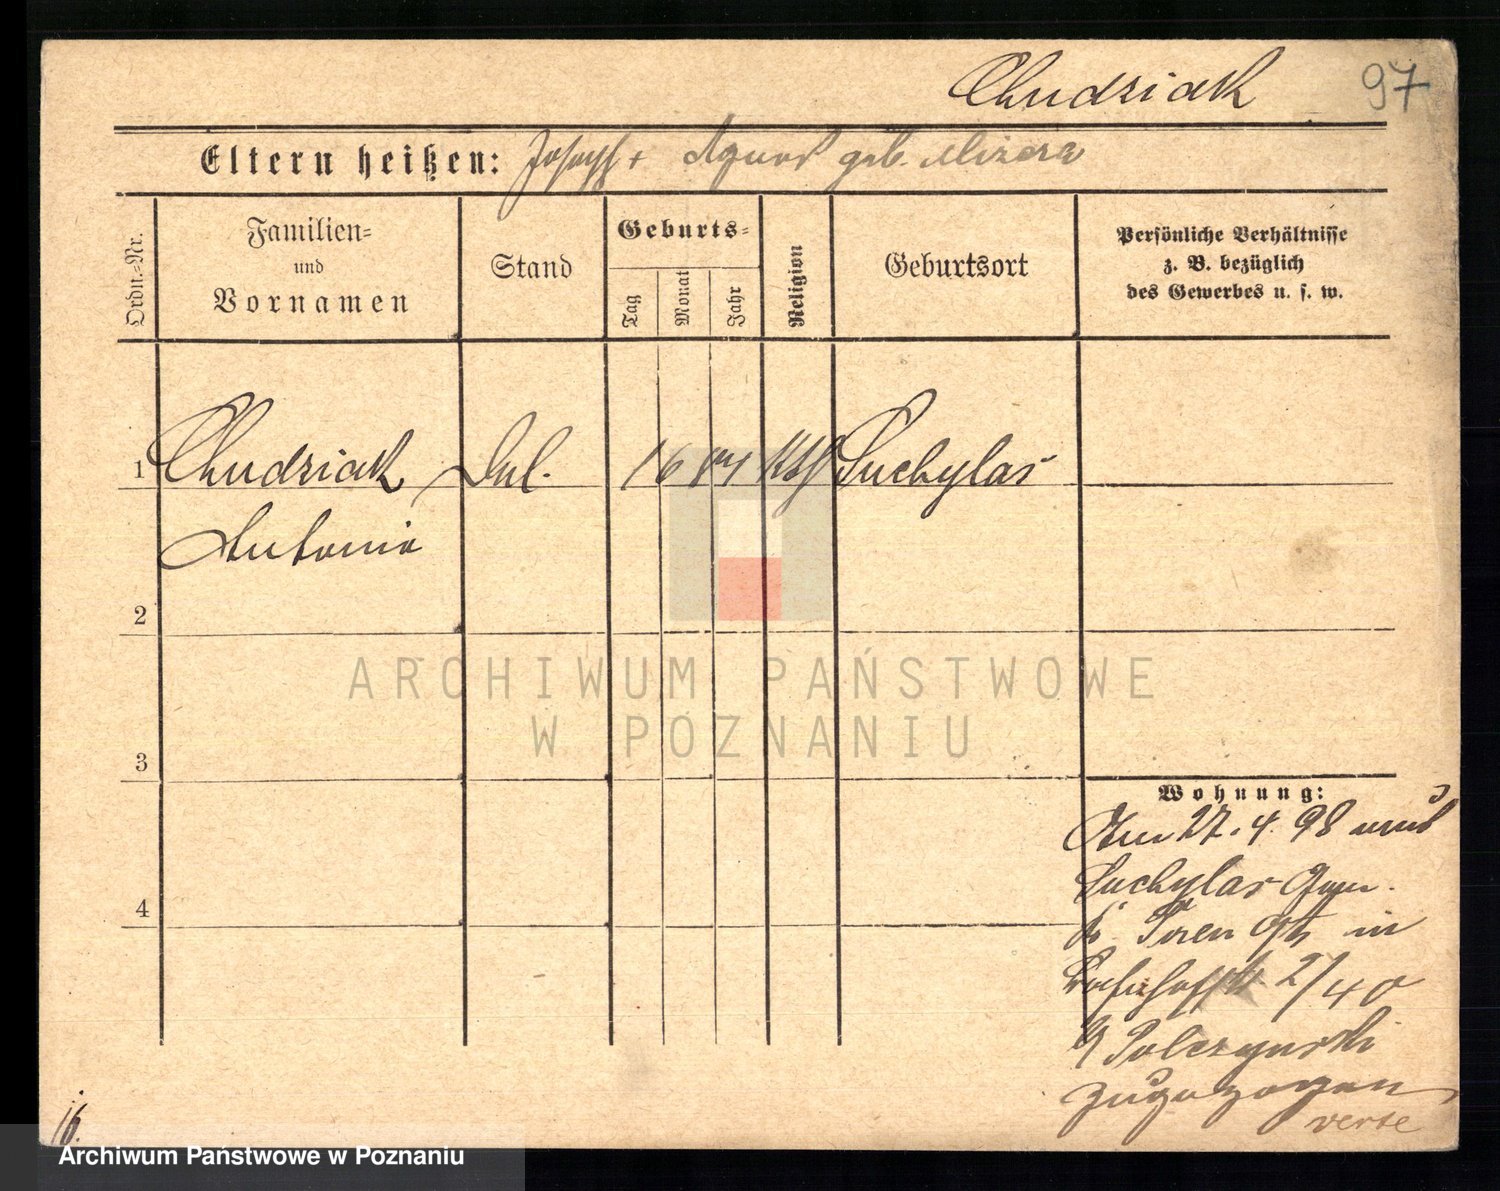 Chudziak 97
Eltern heißen: Joseph + Agnes geb. Mizera
Ordn.-Nr.
Familien-
und
Vornamen
Stand
Geburts-
Tag
Monat
Jahr
Religion
Geburtsort
Persönliche Verhältnisse
z. B. bezüglich
des Gewerbes u. s. w.
1 Chudziak 16 Kth Suchylas
Antonie
2
3
4
ARCHIWUM PAŃSTWOWE
W POZNANIU
Wohnung:
Am 27. 4. 98 aus
Suchylas
Posen in
2/40
b/ Polczynski
zugezogen
verte
16.
Archiwum Państwowe w Poznaniu